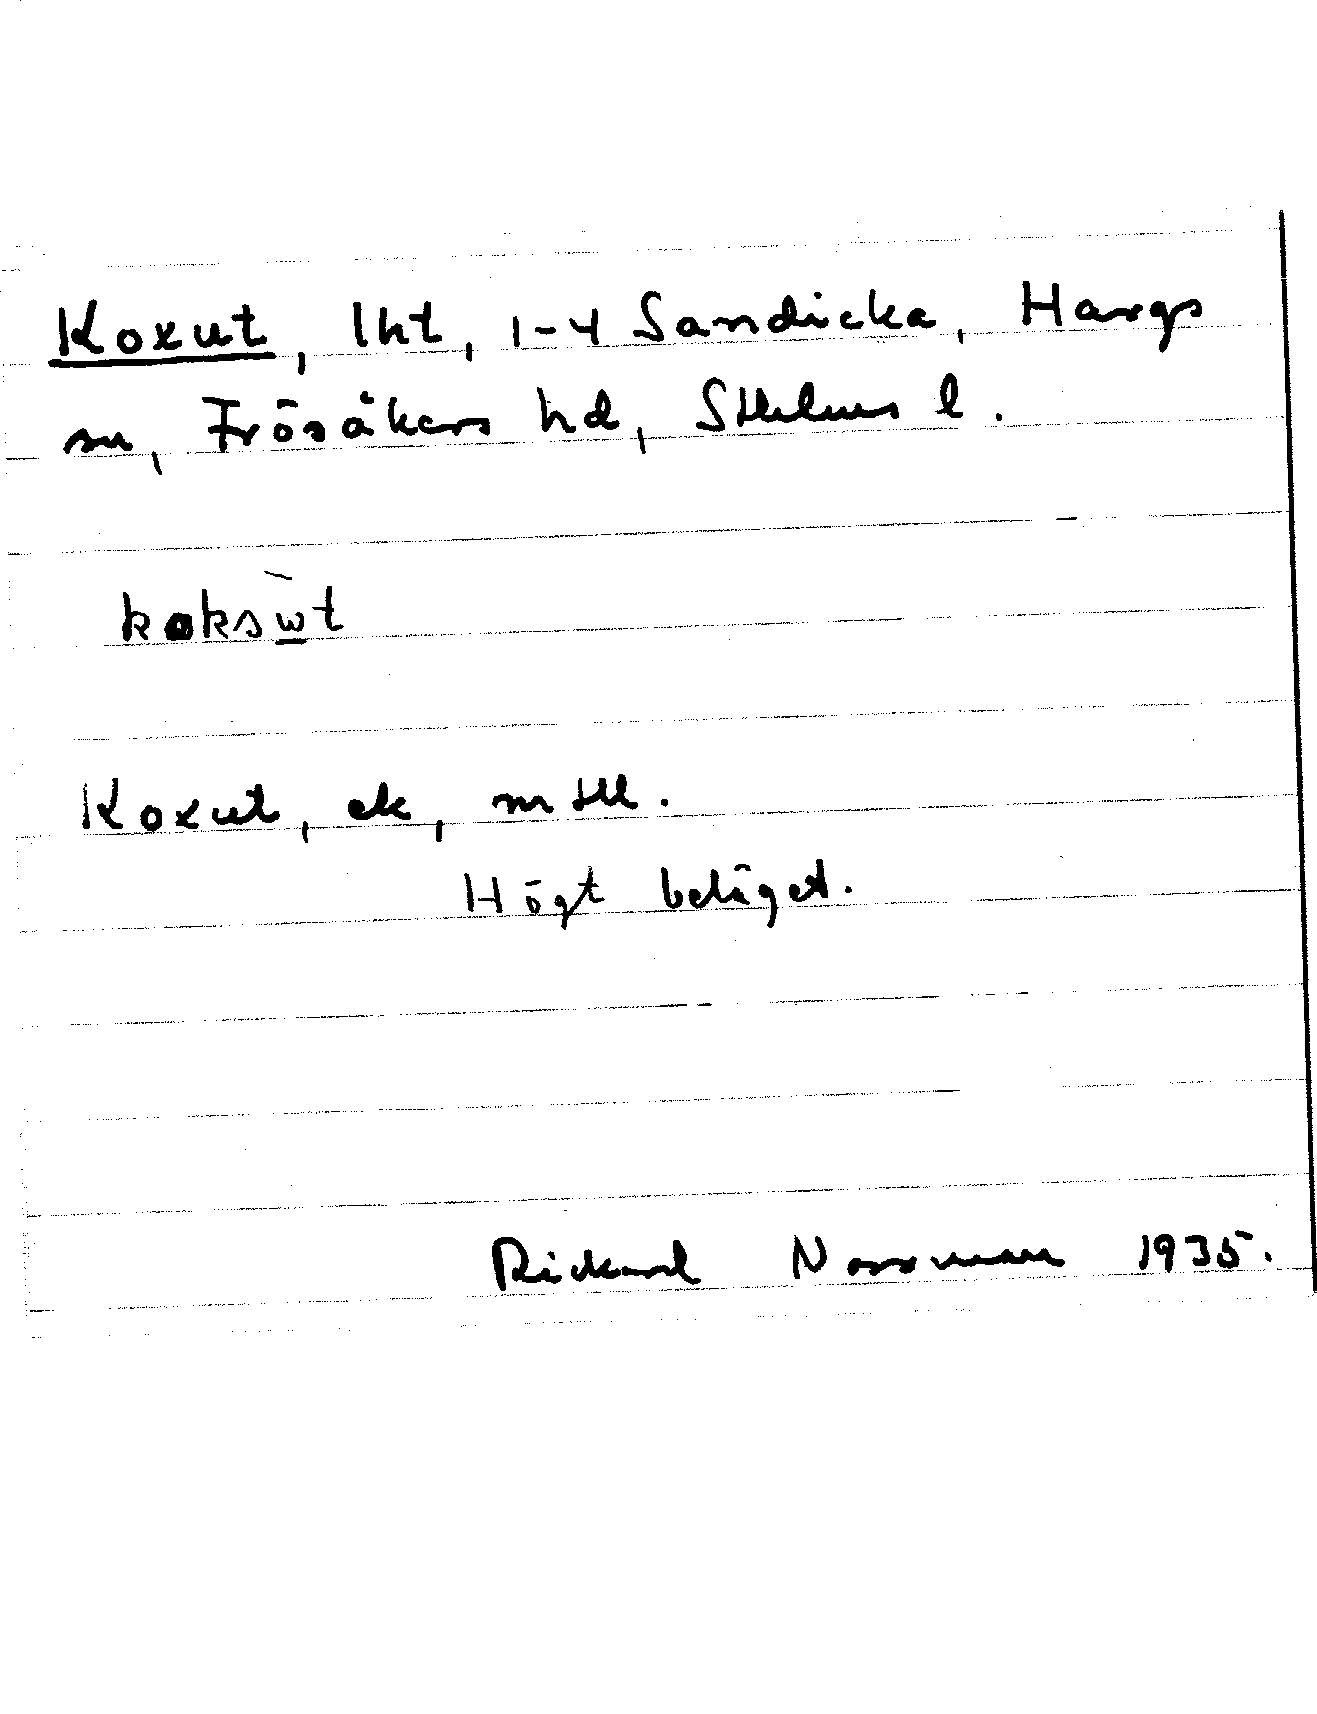 Koxut, lht, 1-4 Sandicka, Hargs
sn, Frösåkers hd, Sthlms l.
koksẁ̲t
Koxut, ek, m Hll.
Högt beläget.
Rickard Norrman 1935.